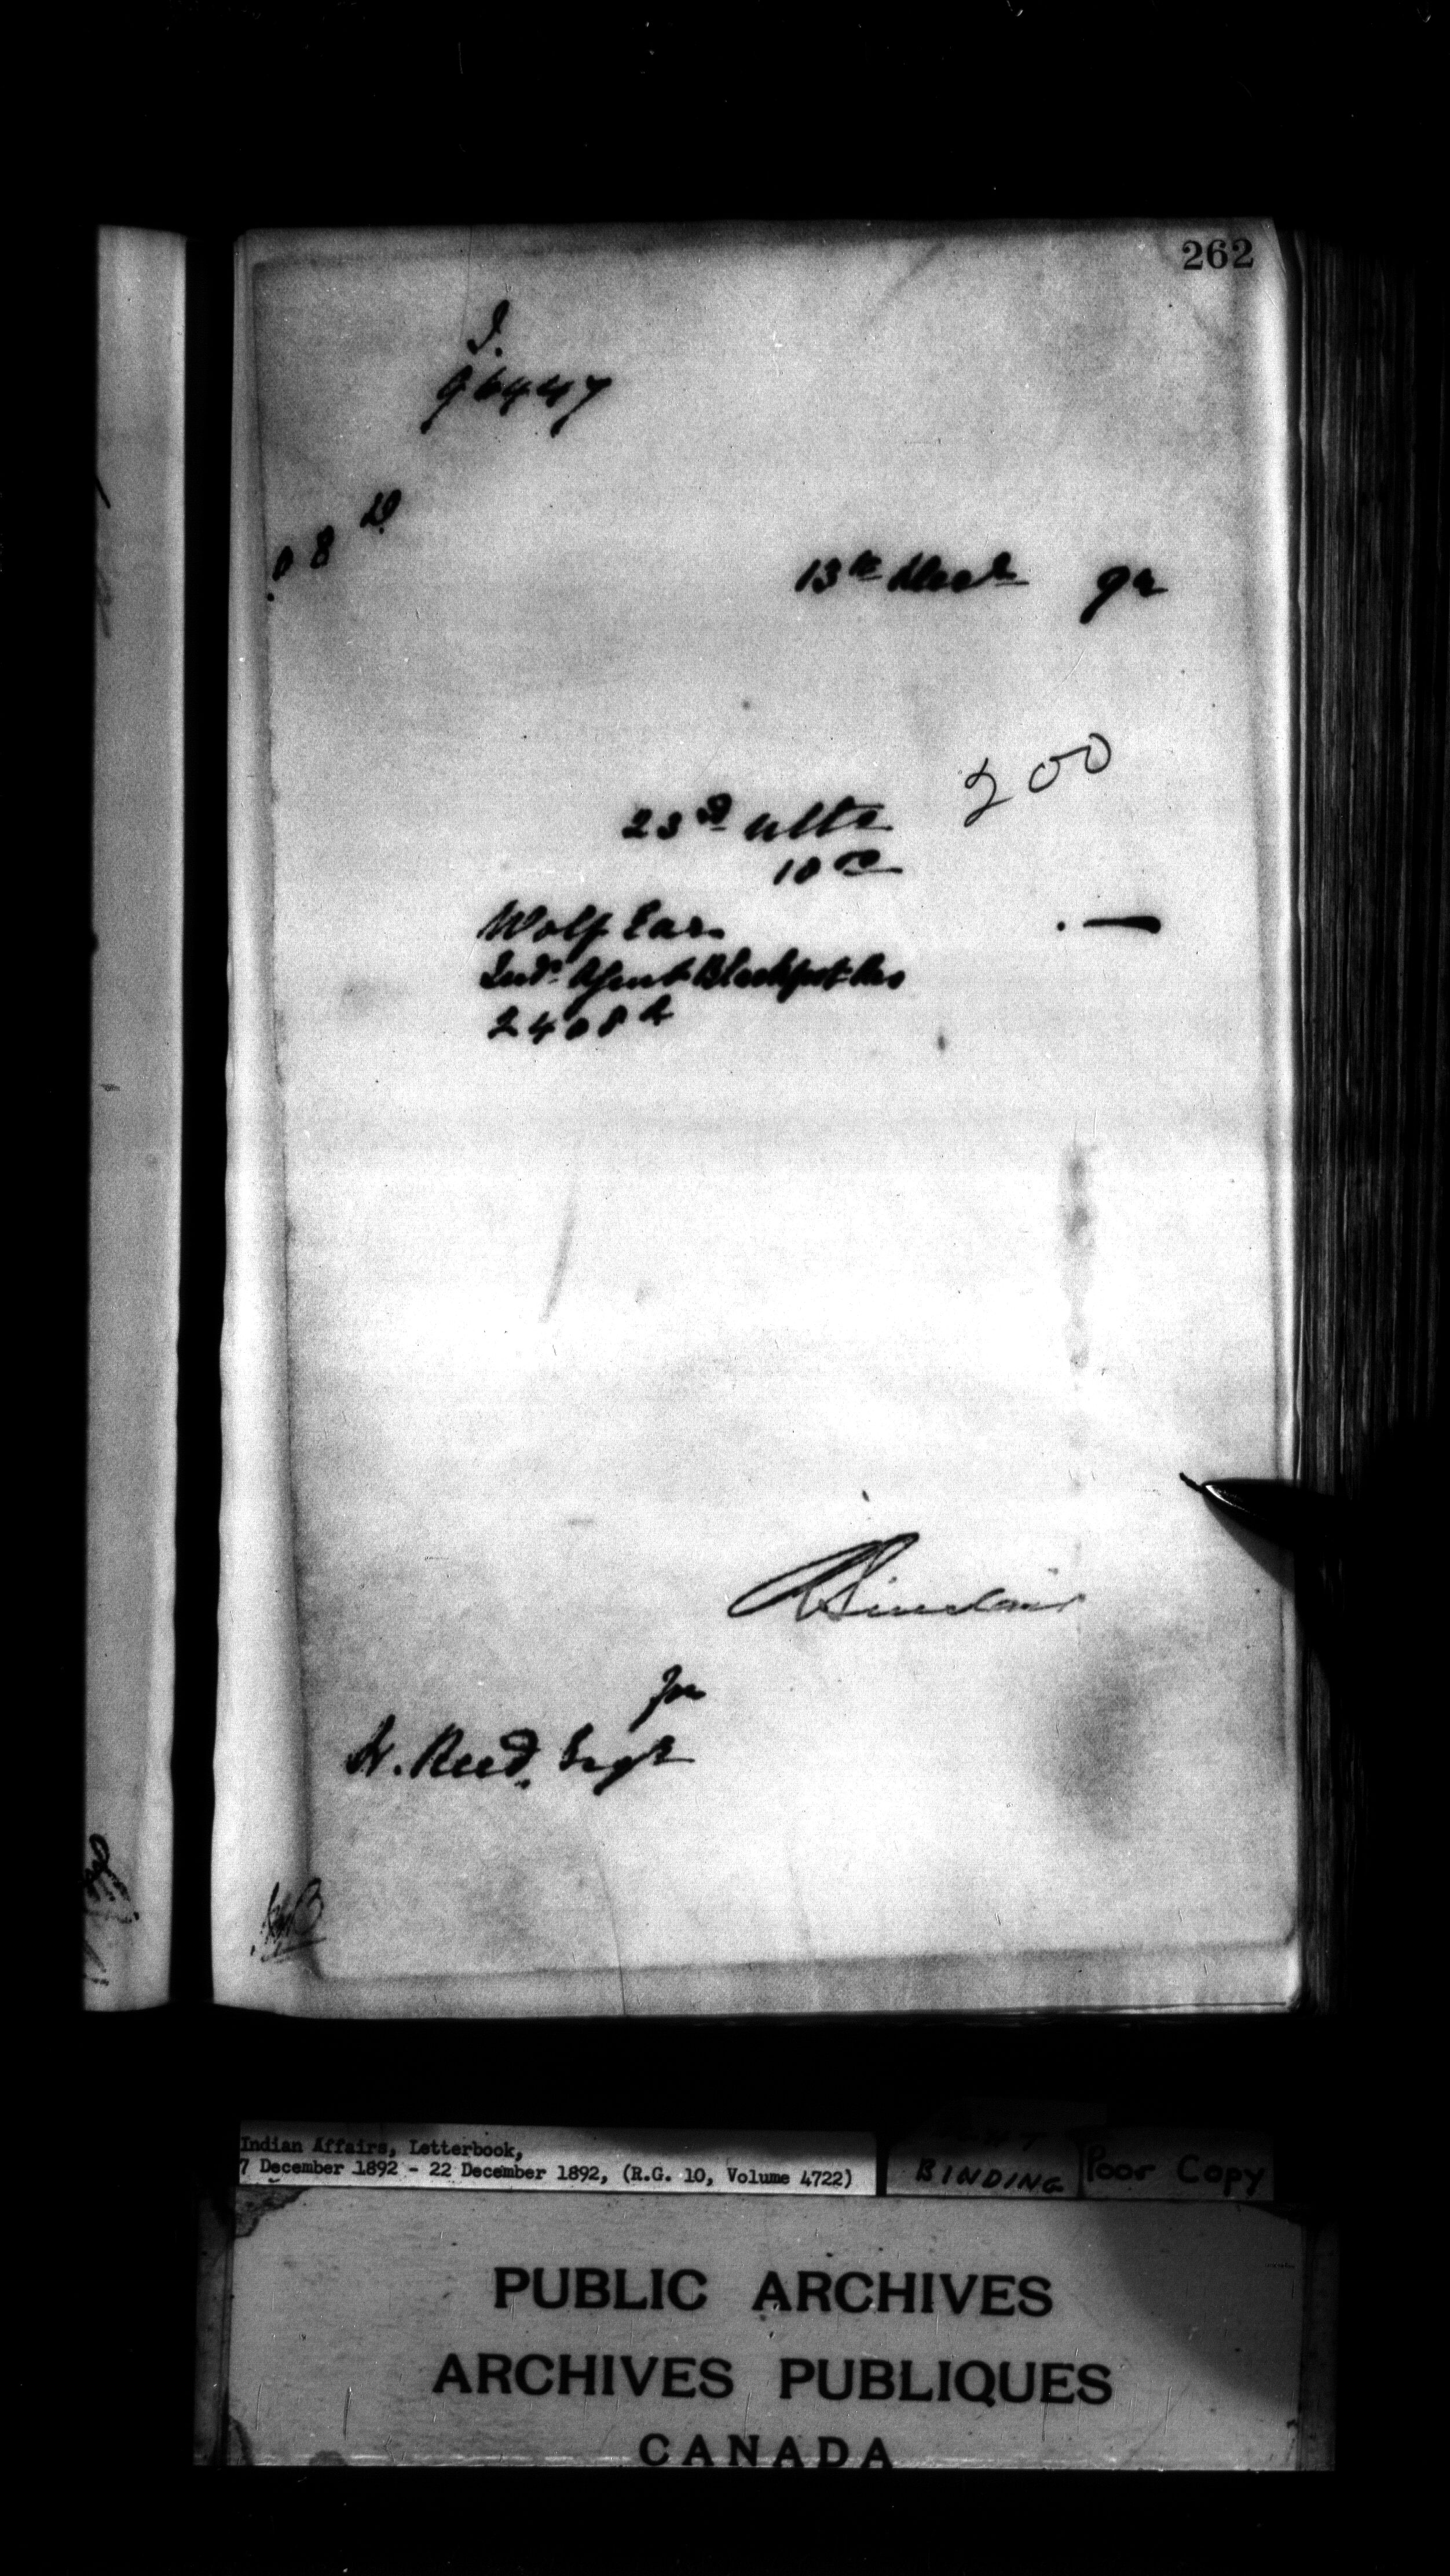 262
J.
96447
08 D.
13th Decr 92
200
23rd ulto
10 00
Wolf Ear.
Ind. Agent Blackfoot Res
2408
R Sinclair
for
H. Reed, Regt
Indian Affairs, Letterbook,
7 December 1892 - 22 December 1892, (R.G. 10, Volume 4722)
BINDING
Poor Copy
PUBLIC ARCHIVES
ARCHIVES PUBLIQUES
CANADA